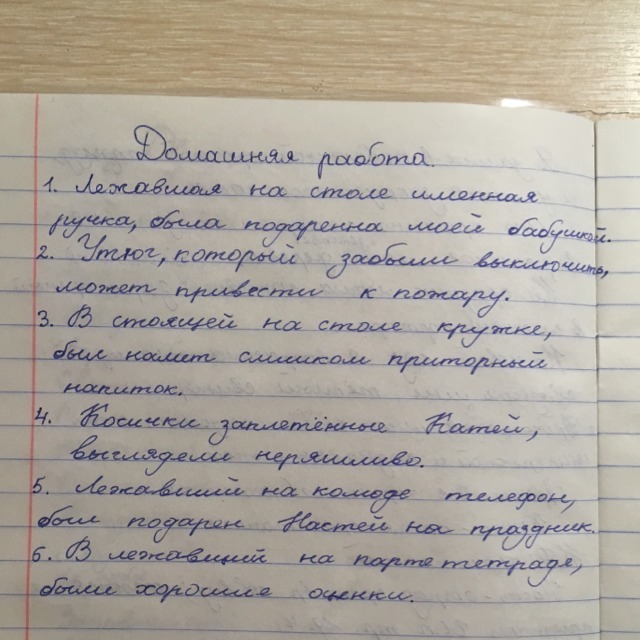 Домашняя работа.
1. Лежавшая на столе именная
ручка, была подаренна моей бабушкой.
2. Утюг, который забыли выключить,
может привести к пожару.
3. В стоящей на столе кружке,
был налит слишком приторный
напиток.
4. Косички заплетённые Катей,
выглядели неряшливо.
5. Лежавший на комоде телефон,
был подарен Настей на праздник.
6. В лежавший на парте тетраде,
были хорошие оценки.